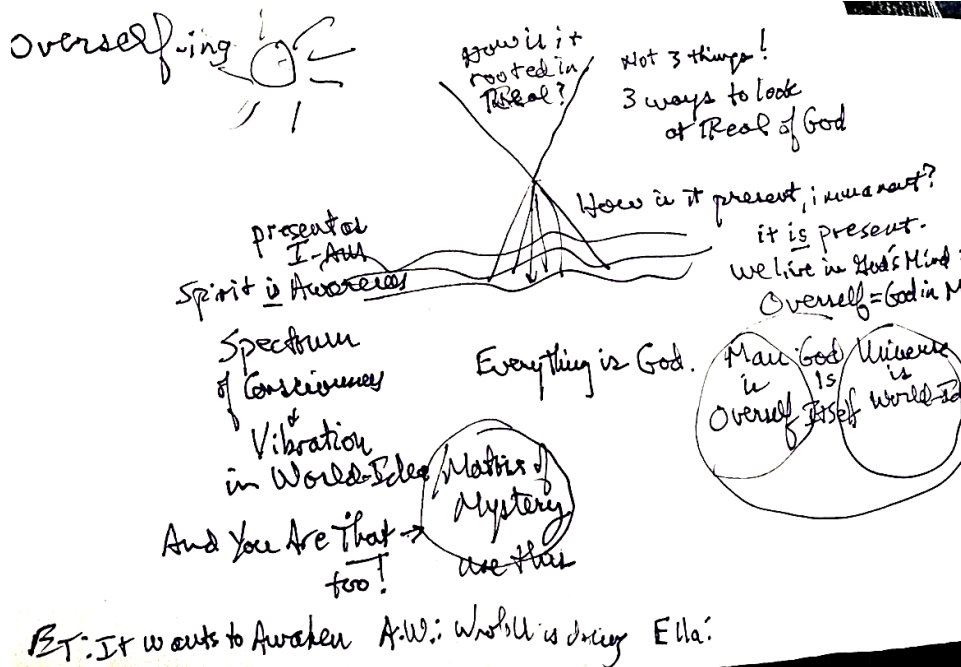 Overself-ing
How is it
rooted in
Real?
Not 3 things!
3 ways to look
at Real of God
How is it present, immanent?
it is present.
we live in God's Mind
Overself = God in M
present as
I-AM
Spirit is Awareness
Spectrum
of Consciousness
&
Vibration
in World-Idea
Everything is God.
Man
is
Overself
God
Is
Itself
Universe
is
World-Id
And You Are That →
too!
Matrix of
Mystery
use this
BT: It wants to Awaken A.W.: is doing Ella: